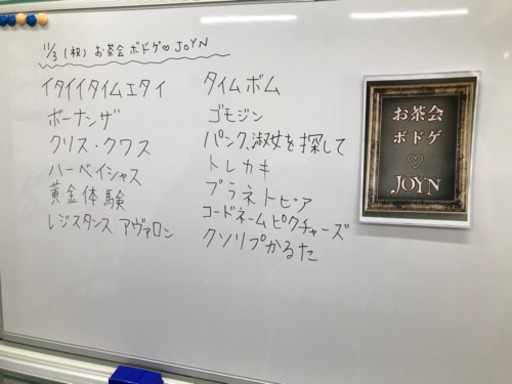 11/3(祝)お茶会ボドゲ♡JOYN
イタイイタイムエタイ
ボーナンザ
クリス・クワス
ハーベイシャス
黄金体験
レジスタンス アヴァロン
タイムボム
ゴモジン
パンク、淑女を探して
トレカキ
プラネトピア
コードネームピクチャーズ
クソリプかるた
お茶会
ボドゲ
♡
JOYN